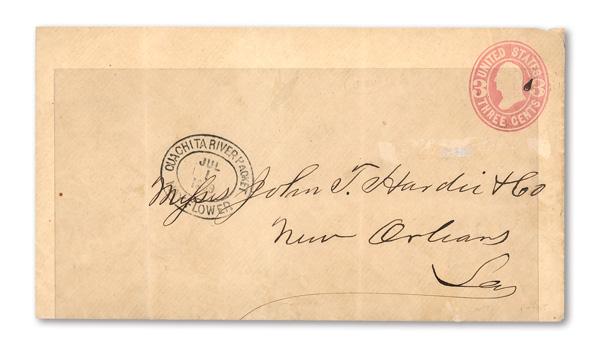 UNITED STATES
3 3
THREE CENTS
OUACHITA RIVER PACKET
JUL
FLOWER
Messrs John T. Hardie & Co
New Orleans
La